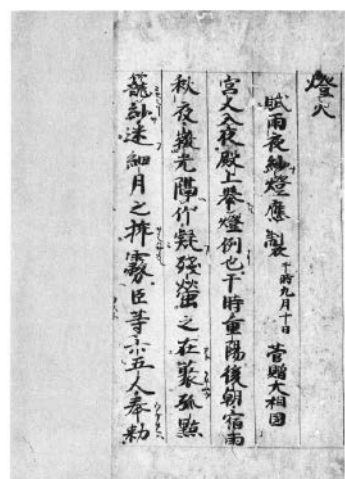 燈火
賦雨夜紗燈應製 于時九月十日 菅贈大相国
宮人入夜殿上擧燈例也于時重陽後朝宿雨
秋夜微光隔竹疑殘螢之在藂孤點
籠紗迷細月之插霧臣等五人奉勅